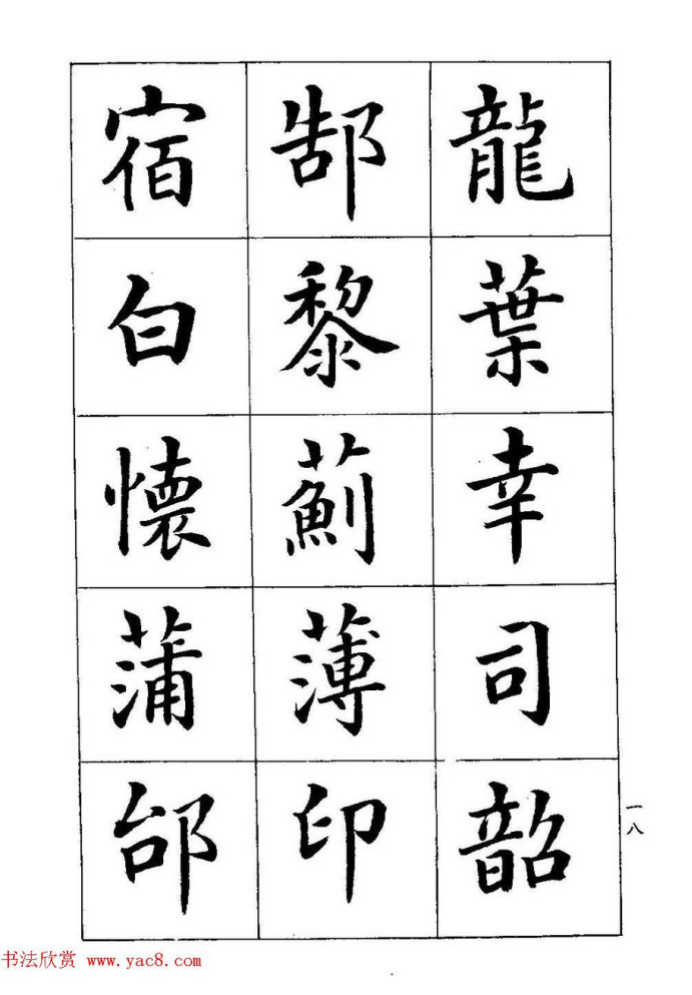 龍葉幸司韶
郜黎薊薄印
宿白懷蒲邰
一八
书法欣赏 www.yac8.com